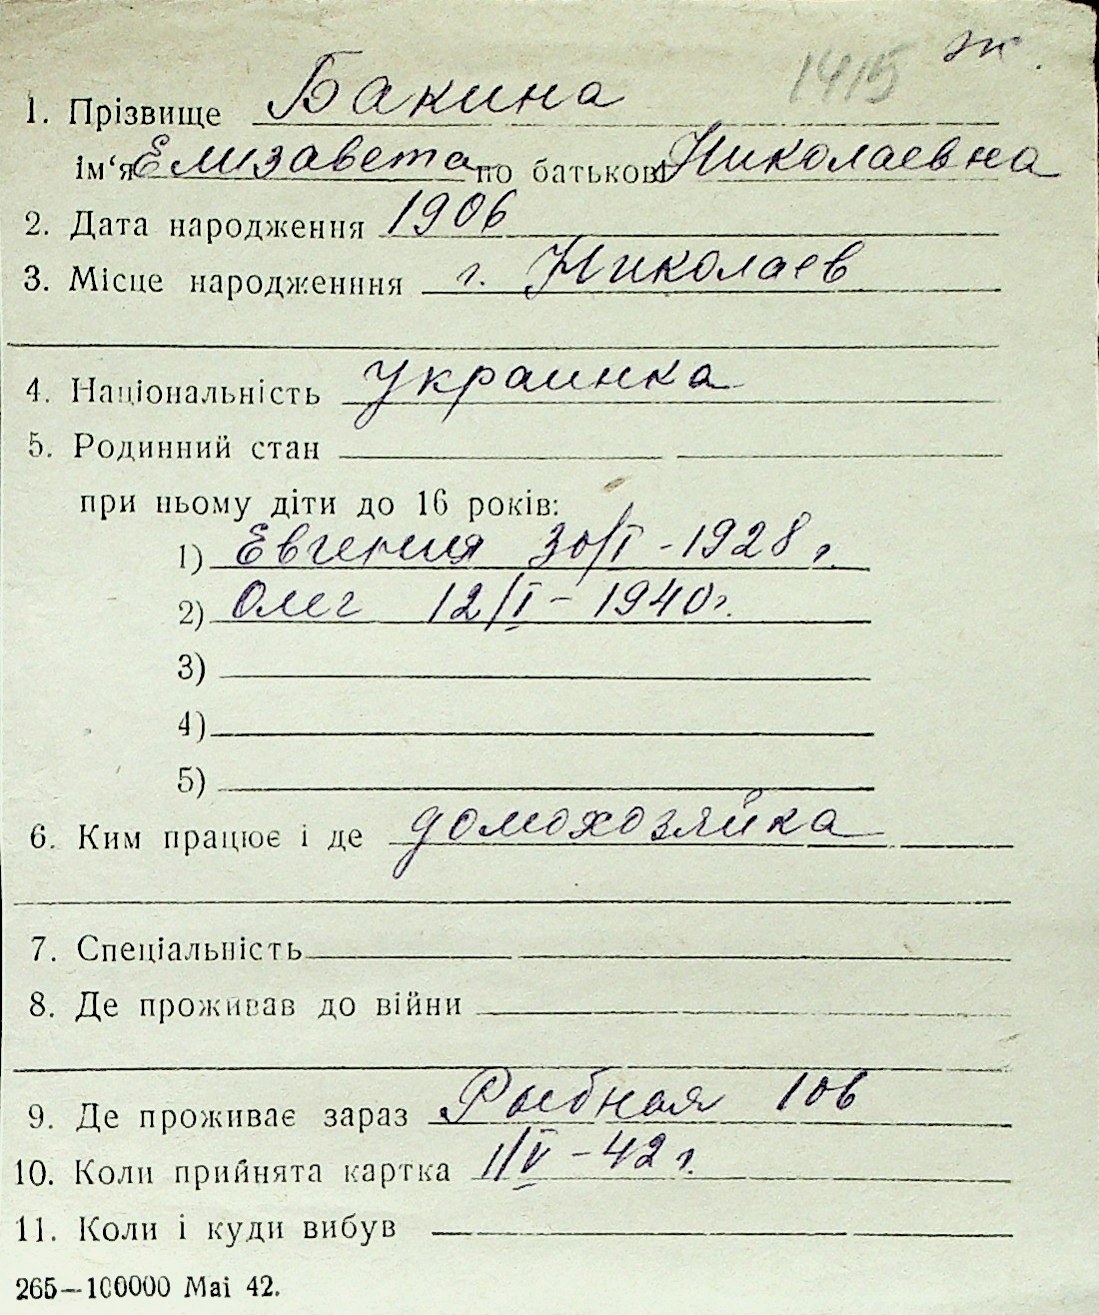 1415 ж.
1. Прізвище Бакина
ім'я Елизавета по батькові Николаевна
2. Дата народження 1906
3. Місце народженння г. Николаев
4. Національність украинка
5. Родинний стан
при ньому діти до 16 років:
1) Евгения 30/I - 1928 г.
2) Олег 12/I - 1940г.
3)
4)
5)
6. Ким працює і де домохозяйка
7. Спеціальність
8. Де проживав до війни
9. Де проживає зараз Рыбная 106
10. Коли прийнята картка 1/V - 42 г.
11. Коли і куди вибув
265—100000 Mai 42.